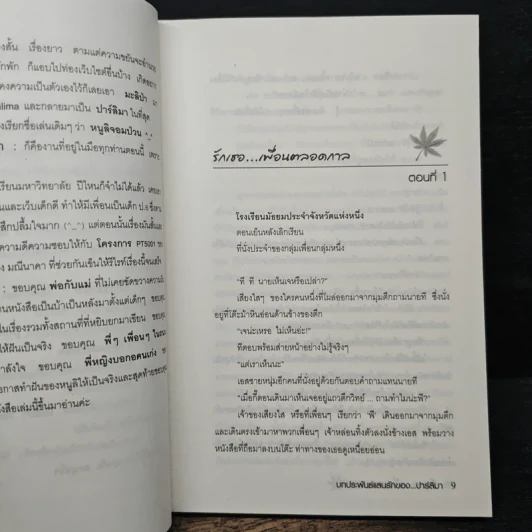 งสั้น เรื่องยาว ตามแต่ความขยันจะอำนวย
ักพัก ก็แอบไปท่องเว็บไซต์อื่นบ้าง เกิดอยาก
คงความเป็นตัวเองไว้ก็เลยเอา มะลิป่า มา
alima และกลายมาเป็น ปาร์ลิมา ในที่สุด
งเรียกชื่อเล่นเดิมๆ ว่า หนูลิจอมป่วน ^_^
: ก็คืองานที่อยู่ในมือทุกท่านตอนนี้ เพราะ
เรียนมหาวิทยาลัย ปีไหนก็จำไม่ได้แล้ว
และเว็บเด็กดี ทำให้มีเพื่อนเป็นเด็ก ป.6
สึกปลื้มใจมาก (^_^) แต่ตอนนั้นเรื่องมันสั้น
ความดีความชอบให้กับ โครงการ PTS001
มณีนาคา ที่ช่วยกันเข็นให้รีไรท์เรื่องนี้จนสำเร็จ
: ขอบคุณ พ่อกับแม่ ที่ไม่เคยขัดขวางความฝัน
หนังสือเป็นบ้าเป็นหลังมาตั้งแต่เด็กๆ ขอบคุณ
ในเรื่องรวมทั้งสถานที่ที่หยิบยกมาเขียน ขอบคุณ
ให้ฝันเป็นจริง ขอบคุณ พี่ๆ เพื่อนๆ ใน
ำลังใจ ขอบคุณ พี่หญิงบอกอคนเก่ง
อกาสทำฝันของหนูลิให้เป็นจริงและสุดท้ายขอบคุณ
ังสือเล่มนี้ขึ้นมาอ่านค่ะ
รักเธอ...เพื่อนตลอดกาล
ตอนที่ 1
โรงเรียนมัธยมประจำจังหวัดแห่งหนึ่ง
ตอนเย็นหลังเลิกเรียน
ที่นั่งประจำของกลุ่มเพื่อนกลุ่มหนึ่ง
“ที ที นายเห็นเจหรือเปล่า?”
เสียงใสๆ ของใครคนหนึ่งที่โผล่ออกมาจากมุมตึกถามนายที ซึ่งนั่ง
อยู่ที่โต๊ะม้าหินอ่อนด้านข้างของตึก
“เจน่ะเหรอ ไม่เห็นอ่ะ!”
ทีตอบพร้อมส่ายหน้าอย่างไม่รู้จริงๆ
“แต่เราเห็นนะ”
เอสชายหนุ่มอีกคนที่นั่งอยู่ด้วยกันตอบคำถามแทนนายที
“เมื่อกี้ตอนเดินมาเห็นเจอยู่แถวตึกวิทย์ ... ถามทำไมน่ะฟี?”
เจ้าของเสียงใส หรือที่เพื่อนๆ เรียกว่า ‘ฟี’ เดินออกมาจากมุมตึก
และเดินตรงเข้ามาหาพวกเพื่อนๆ เจ้าหล่อนทิ้งตัวลงนั่งข้างเอส พร้อมวาง
หนังสือที่ถือมาลงบนโต๊ะ ท่าทางของเธอดูเหนื่อยอ่อน
บทประพันธ์แสนรักของ...ปาร์ลิมา 9